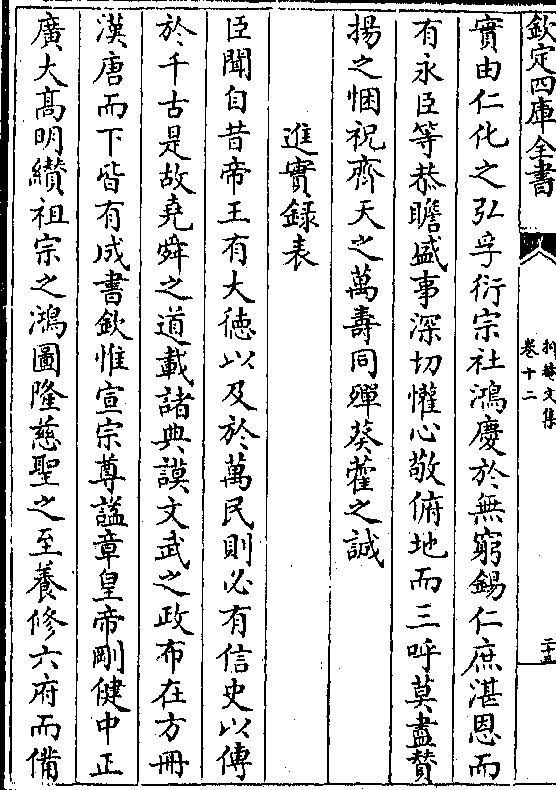 欽定四庫全書
抑菴文集
卷十二
二十五
實由仁化之弘孚衍宗社鴻慶於無窮錫仁庶湛恩而
有永臣等恭瞻盛事深切懽心敬俯地而三呼莫盡贊
揚之悃祝齊天之萬壽同殫葵藿之誠
進實錄表
臣聞自昔帝王有大徳以及於萬民則必有信史以傳
於千古是故堯舜之道載諸典謨文武之政布在方冊
漢唐而下皆有成書欽惟宣宗尊諡章皇帝剛健中正
廣大髙明纉祖宗之鴻圖隆慈聖之至養修六府而備